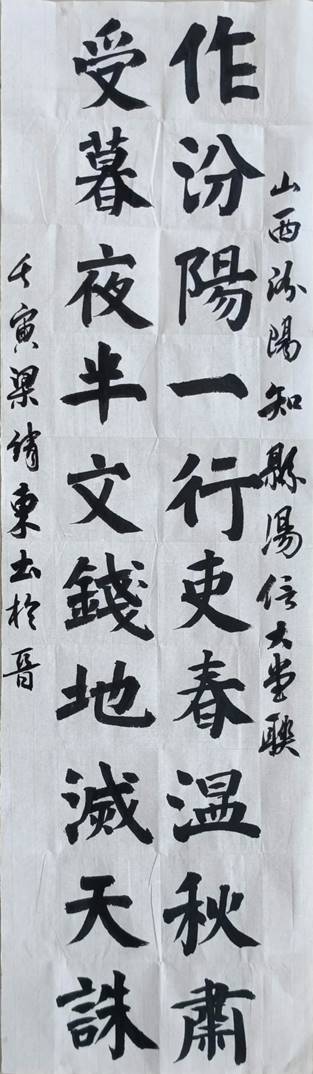 山西汾陽知縣湯信大堂聯
作汾陽一行吏春温秋肅
受暮夜半文錢地滅天誅
壬寅梁绪東书於晋